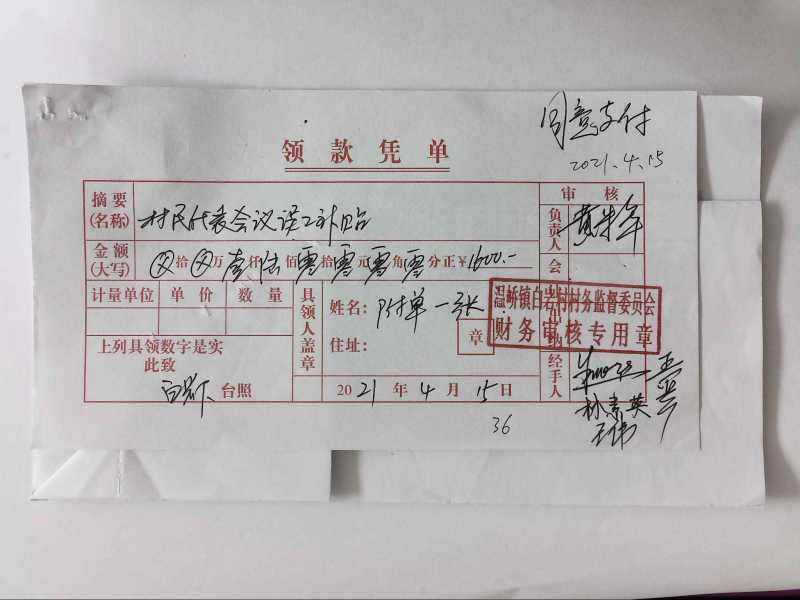 同意支付
2021.4.15
领款凭单
摘要(名称) 村民代表会议误工补贴 审核
负责人
金额(大写) ⊗拾⊗万壹仟陆佰零拾零元零角零分正¥1600.-
会
计量单位 单价 数量 具领人盖章 姓名: 附单一张 出纳
温峤镇白岩村村务监督委员会
财务审核专用章
住址: 章
上列具领数字是实
此致
台照 2021年4月15日 经手人
林素英
王伟
36